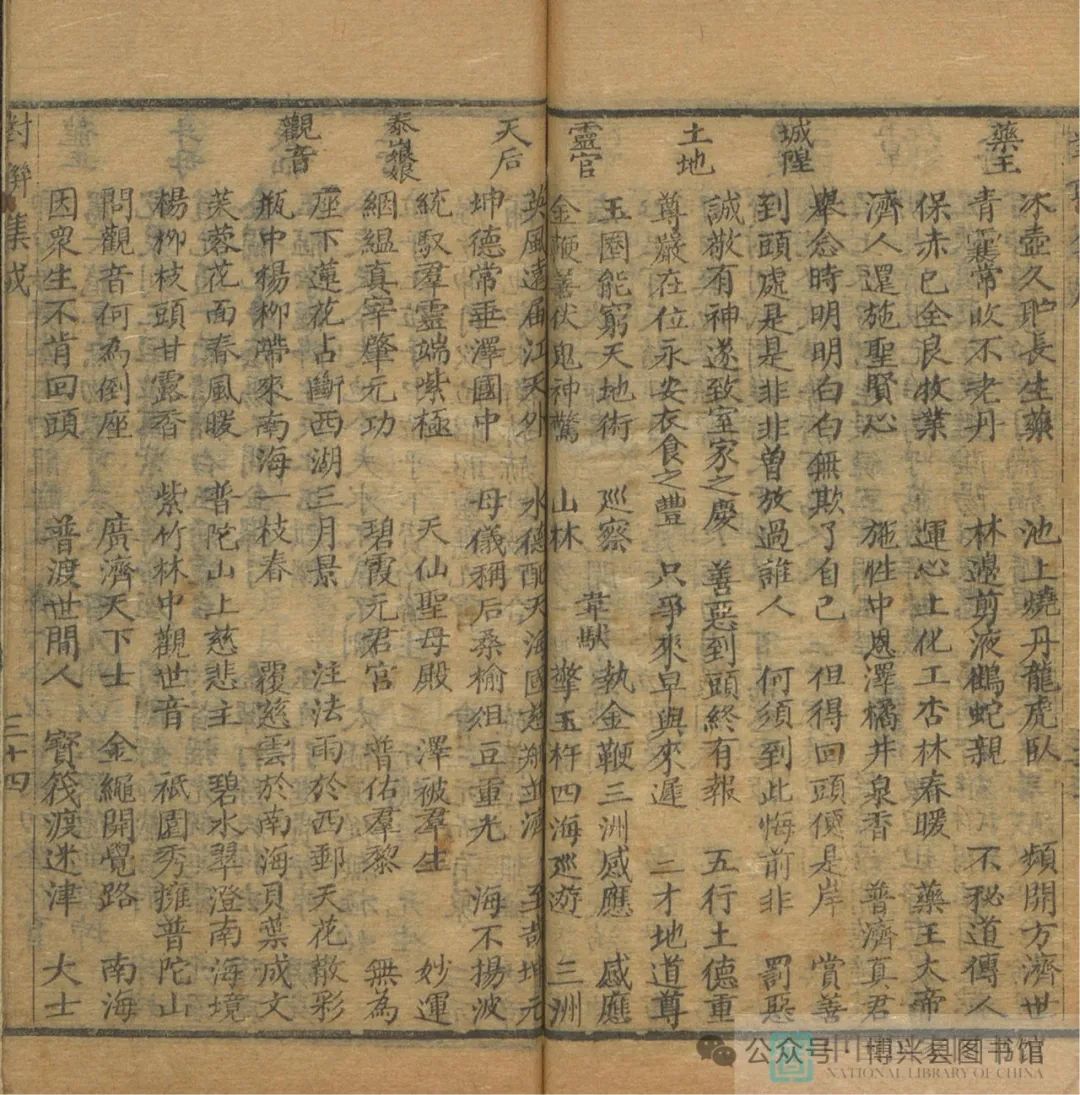 藥王
冰壺久貯長生藥 池上燒丹龍虎臥 頻開方濟世
青囊常收不老丹 林邊剪液鶴蛇親 不秘道傳人
保赤已全良牧業 運心上化工杏林春暖 藥王大帝
濟人還施聖賢心 施性中恩澤橘井泉香 普濟真君
城隍
舉念時明明白白無欺了自己 但得回頭便是岸 賞善
到頭處是是非非曾放過誰人 何須到此悔前非 罰惡
土地
誠敬有神遂致室家之慶 善惡到頭終有報 五行土德重
尊嚴在位永安衣食之豐 只爭來早與來遲 二才地道尊
靈官
玉圈能窮天地術 巡察 韋馱 執金鞭三洲感應 感應
金鞭善伏鬼神驚 山林 擎玉杵四海巡遊 三洲
天后
英風遠届江天外 水德配天海國慈航並濟 至哉坤元
坤德常垂澤國中 母儀稱后桑榆俎豆重光 海不揚波
泰山娘娘
統馭羣靈端紫極 天仙聖母殿 澤被羣生 妙運
絪縕真宰肇元功 碧霞元君宮 普佑羣黎 無為
觀音
座下蓮花占斷西湖三月景 注法雨於西郵天花散彩
瓶中楊柳帶來南海一枝春 覆慈雲於南海貝葉成文
芙蓉花面春風暖 普陀山上慈悲主 碧水翠澄南海境
楊柳枝頭甘露香 紫竹林中觀世音 祇園秀擁普陀山
問觀音何為倒座 廣濟天下士 金繩開覺路 南海
因衆生不肯回頭 普渡世間人 寶筏渡迷津 大士
對聯集成
三十四
公众号·博兴县图书馆
NATIONAL LIBRARY OF CHINA